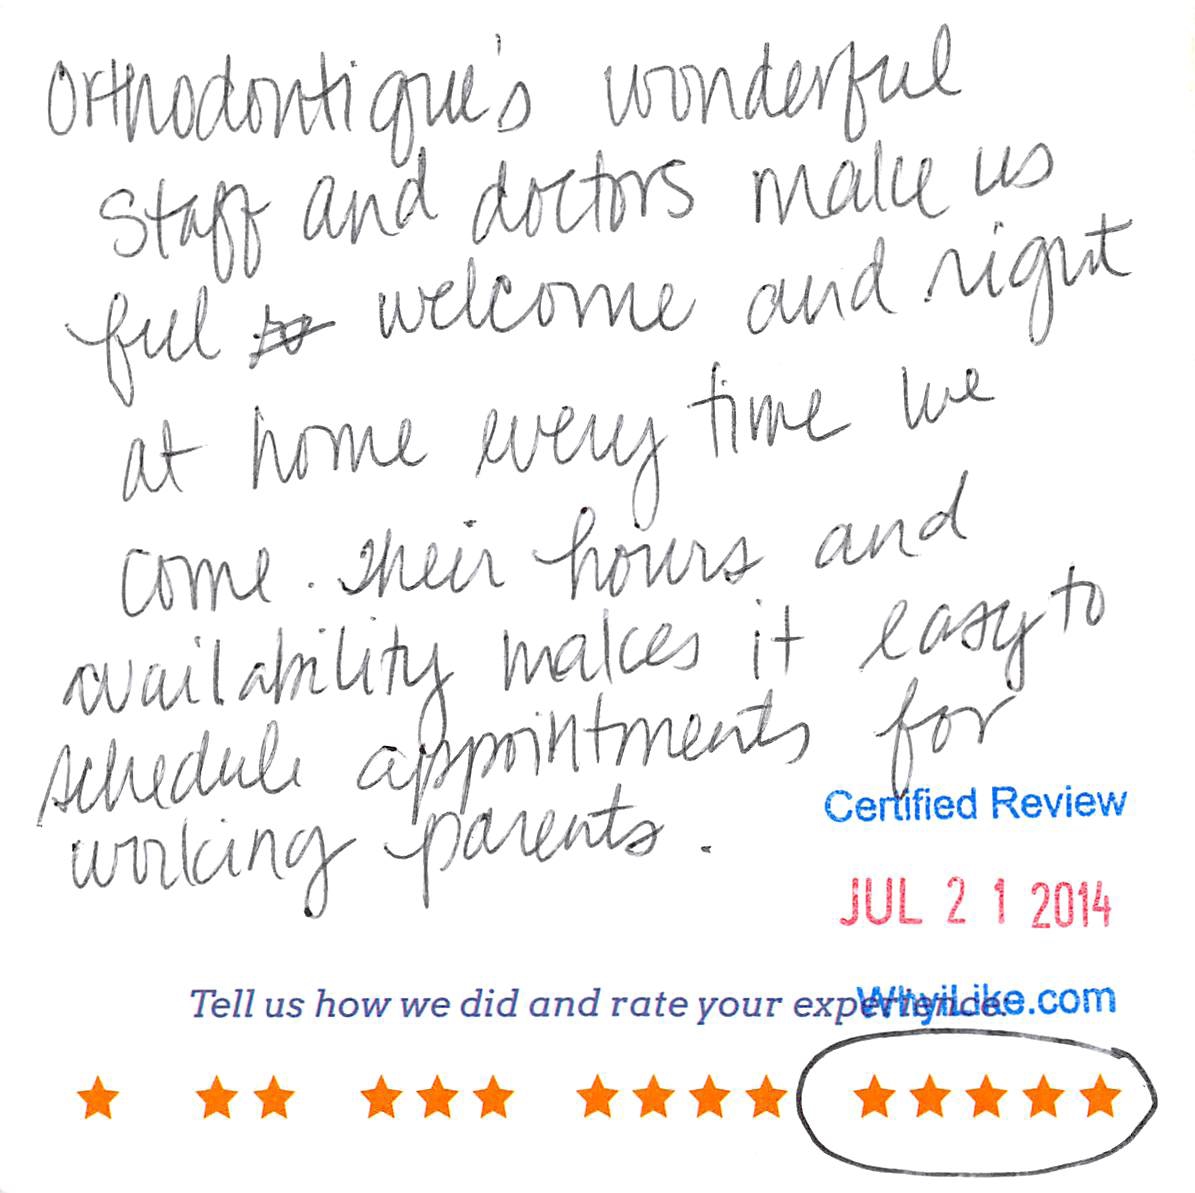 Orthodontique's wonderful
staff and doctors make us
feel welcome and right
at home every time we
come. Their hours and
availability makes it easy to
schedule appointments for
working parents.
Certified Review
JUL 21 2014
WhyiLike.com
Tell us how we did and rate your experience: